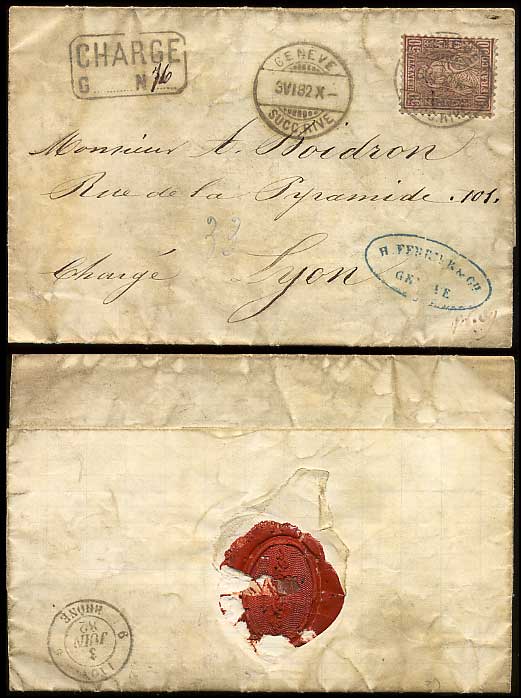 CHARGÉ
G N 76
GENÈVE
3 VI 82 X-
SUCC. RIVE
50
FRANCO
Monsieur A. Boidron
Rue de la Pyramide. 101.
33
Chargé Lyon
H. FERRIER & Cie
3
JUIN
82
RHONE